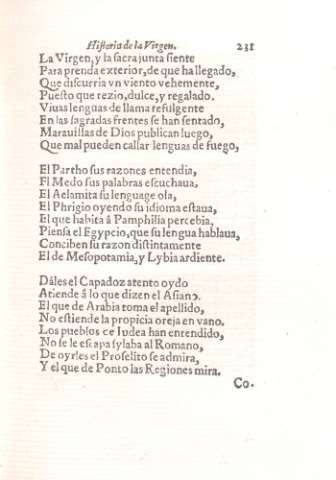 Historia de la Virgen. 231
La Virgen, y la sacra junta siente
Para prenda exterior, de que ha llegado,
Que discurria vn viento vehemente,
Puesto que rezio, dulce, y regalado.
Viuas lenguas de llama refulgente
En las sagradas frentes se han sentado,
Marauillas de Dios publican luego,
Que mal pueden callar lenguas de fuego,
El Partho sus razones entendia,
El Medo sus palabras escuchaua,
El Aelamita su lenguage ola,
El Phrigio oyendo su idioma estaua,
El que habita â Pamphilia percebia,
Piensa el Egypcio, que su lengua hablaua,
Conciben su razon distintamente
El de Mesopotamia, y Lybia ardiente.
Dâles el Capadoz atento oydo
Atiende â lo que dizen el Asiano.
El que de Arabia toma el apellido,
No estiende la propicia oreja en vano.
Los pueblos ce Iudea han entendido,
No se le esapasylaba al Romano,
De oyrles el Proselito se admira,
Y el que de Ponto las Regiones mira.
Co.